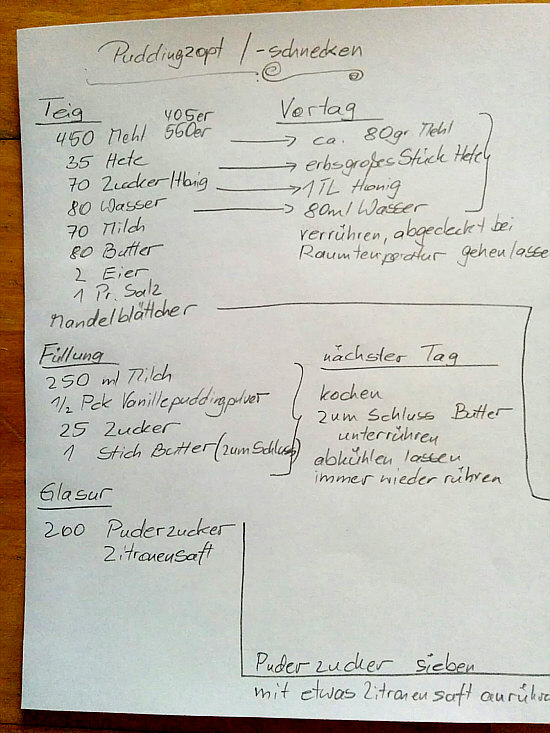 Puddingzopf / -schnecken
Teig 405er
450 Mehl 550er
35 Hefe
70 Zucker/Honig
80 Wasser
70 Milch
80 Butter
2 Eier
1 Pr. Salz
Mandelblättcher
Vortag
ca. 80gr Mehl
erbsgroßes Stück Hefe
1 TL Honig
80ml Wasser
verrühren, abgedeckt bei
Raumtemperatur gehenlasse
Füllung
250 ml Milch
1/2 Pck Vanillepuddingpulver
25 Zucker
1 Stich Butter (zum Schluss)
nächster Tag
kochen
zum Schluss Butter
unterrühren
abkühlen lassen
immer wieder rühren
Glasur
200 Puderzucker
Zitronensaft
Puderzucker sieben
mit etwas Zitronensaft anrühre